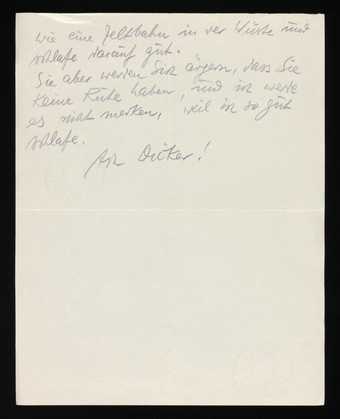 wie eine Zeltbahn in der Wüste und
schlafe darauf gut.
Sie aber werden sich ärgern, dass Sie
keine Ruhe haben, und ich werde
es nicht merken, weil ich so gut
schlafe.
Ach Dicker!